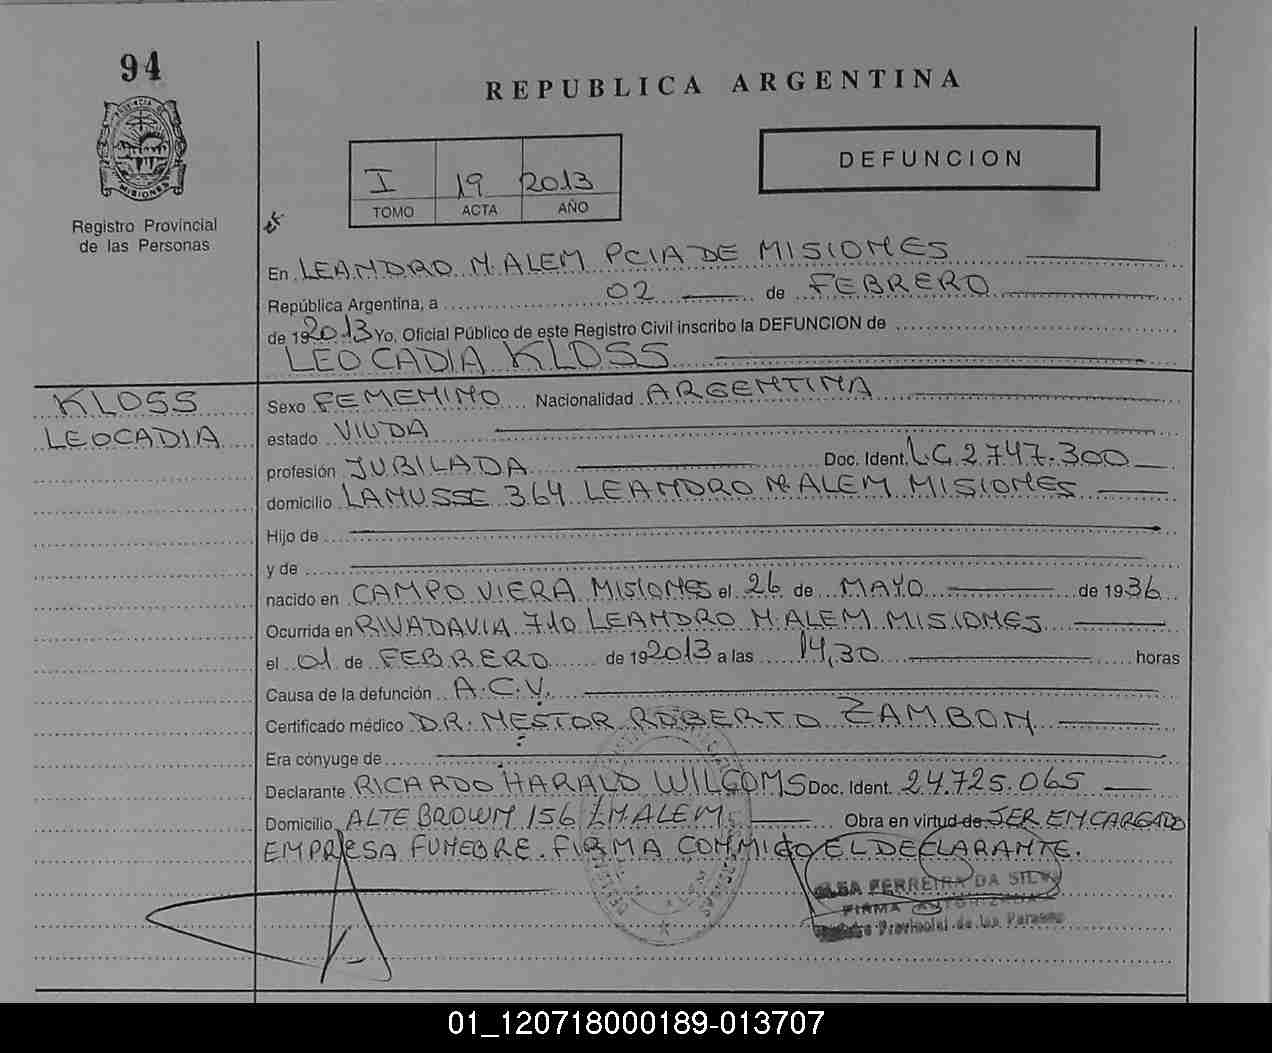 94
REPUBLICA ARGENTINA
DEFUNCION
I 19 2013
TOMO ACTA AÑO
PROVINCIA DE MISIONES
Registro Provincial
de las Personas
En LEANDRO N. ALEM PCIA DE MISIONES
República Argentina, a 02 de FEBRERO
de 192013 Yo, Oficial Público de este Registro Civil inscribo la DEFUNCION de
LEOCADIA KLOSS
KLOSS
LEOCADIA
Sexo FEMENINO Nacionalidad ARGENTINA
estado VIUDA
profesión JUBILADA Doc. Ident. L.C 2.747.300
domicilio LAMUSSE 364 LEANDRO N. ALEM MISIONES
Hijo de
y de
nacido en CAMPO VIERA MISIONES el 26 de MAYO de 1936
Ocurrida en RIVADAVIA 710 LEANDRO N. ALEM MISIONES
el 01 de FEBRERO de 192013 a las 14,30 horas
Causa de la defunción A.C.V.
Certificado médico DR. NESTOR ROBERTO ZAMBON
Era cónyuge de
Declarante RICARDO HARALD WILCOMS Doc. Ident. 24.725.065
Domicilio ALTE BROWN 156 L.N.ALEM Obra en virtud de SER ENCARGADO
EMPRESA FUNEBRE. FIRMA CONMIGO EL DECLARANTE.
FERREIRA DA SILVA
FIRMA AUTORIZADA
Registro Provincial de las Personas
01_120718000189-013707